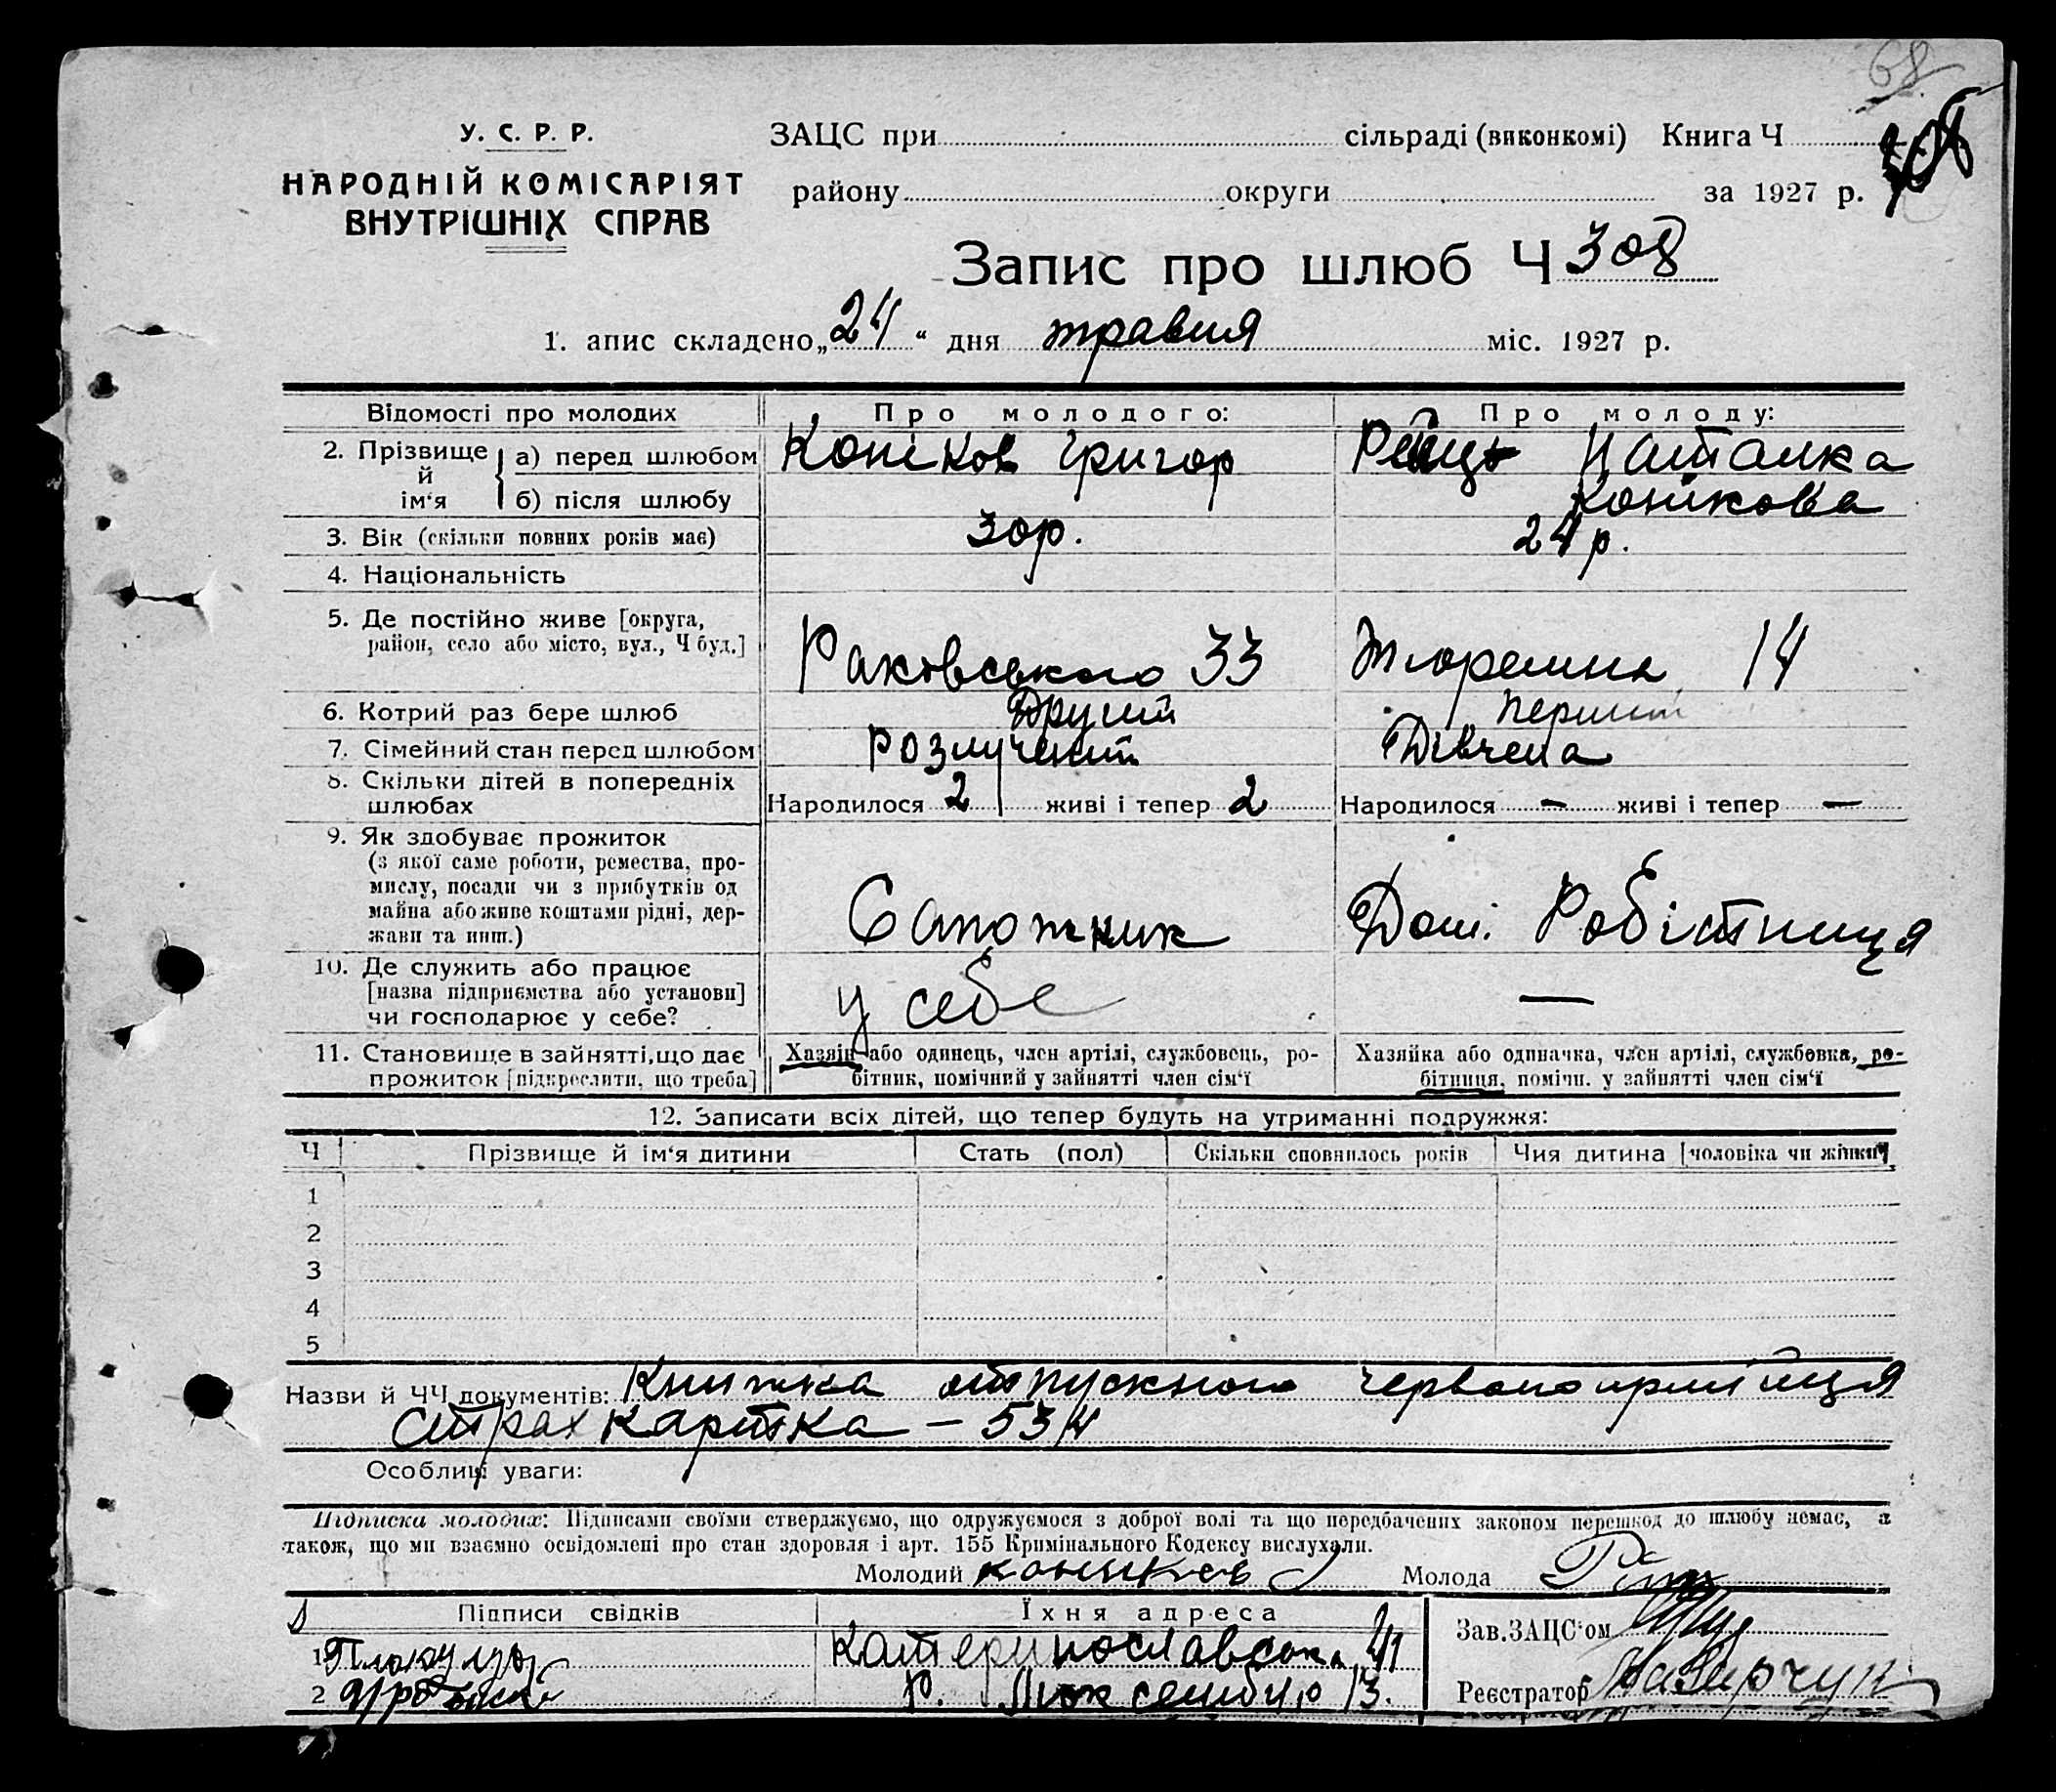 68
308
У. С. Р. Р.
НАРОДНІЙ КОМІСАРІЯТ
ВНУТРІШНІХ СПРАВ
ЗАЦС при сільраді (виконкомі) Книга Ч
району округи за 1927 р.
Запис про шлюб Ч 308
1. апис складено „24“ дня травня міс. 1927 р.
Відомості про молодих Про молодого: Про молоду:
2. Прізвище й ім‘я
а) перед шлюбом Коніков Григор Наталка
б) після шлюбу Конікова
3. Вік (скільки повних років має) 30р. 24р.
4. Національність
5. Де постійно живе [округа,
район, село або місто, вул., Ч буд.] Раковського 33 Тюремна 14
6. Котрий раз бере шлюб Другий перший
7. Сімейний стан перед шлюбом Розлучений Дівчена
8. Скільки дітей в попередніх
шлюбах Народилося 2 живі і тепер 2 Народилося — живі і тепер —
9. Як здобуває прожиток
(з якої саме роботи, ремества, про-
мислу, посади чи з прибутків од
майна або живе коштами рідні, дер-
жави та инш.) Сапожник Дом. Робітниця
10. Де служить або працює
[назва підприємства або установи]
чи господарює у себе? у себе —
11. Становище в зайнятті, що дає
прожиток [підкреслити, що треба]
Хазяїн або одинець, член артілі, службовець, ро-
бітник, помічний у зайнятті член сім‘ї
Хазяйка або одиначка, член артілі, службовка, ро-
бітниця, помічн. у зайнятті член сім‘ї
12. Записати всіх дітей, що тепер будуть на утриманні подружжя:
Ч Прізвище й ім‘я дитини Стать (пол) Скільки сповнилось років Чия дитина [чоловіка чи жінки]
1
2
3
4
5
Назви й ЧЧ документів: Книжка отпускного червоноармійця
Страхкартка — 534
Особливі уваги:
Підписка молодих: Підписами своїми стверджуємо, що одружуємося з доброї волі та що передбачених законом перешкод до шлюбу немає, а
також, що ми взаємно освідомлені про стан здоровля і арт. 155 Кримінального Кодексу вислухали.
Молодий Коников Молода
Підписи свідків Їхня адреса
1 Катеринославська 41
2 Р. Люксембург 13.
Зав. ЗАЦС‘ом
Реєстратор